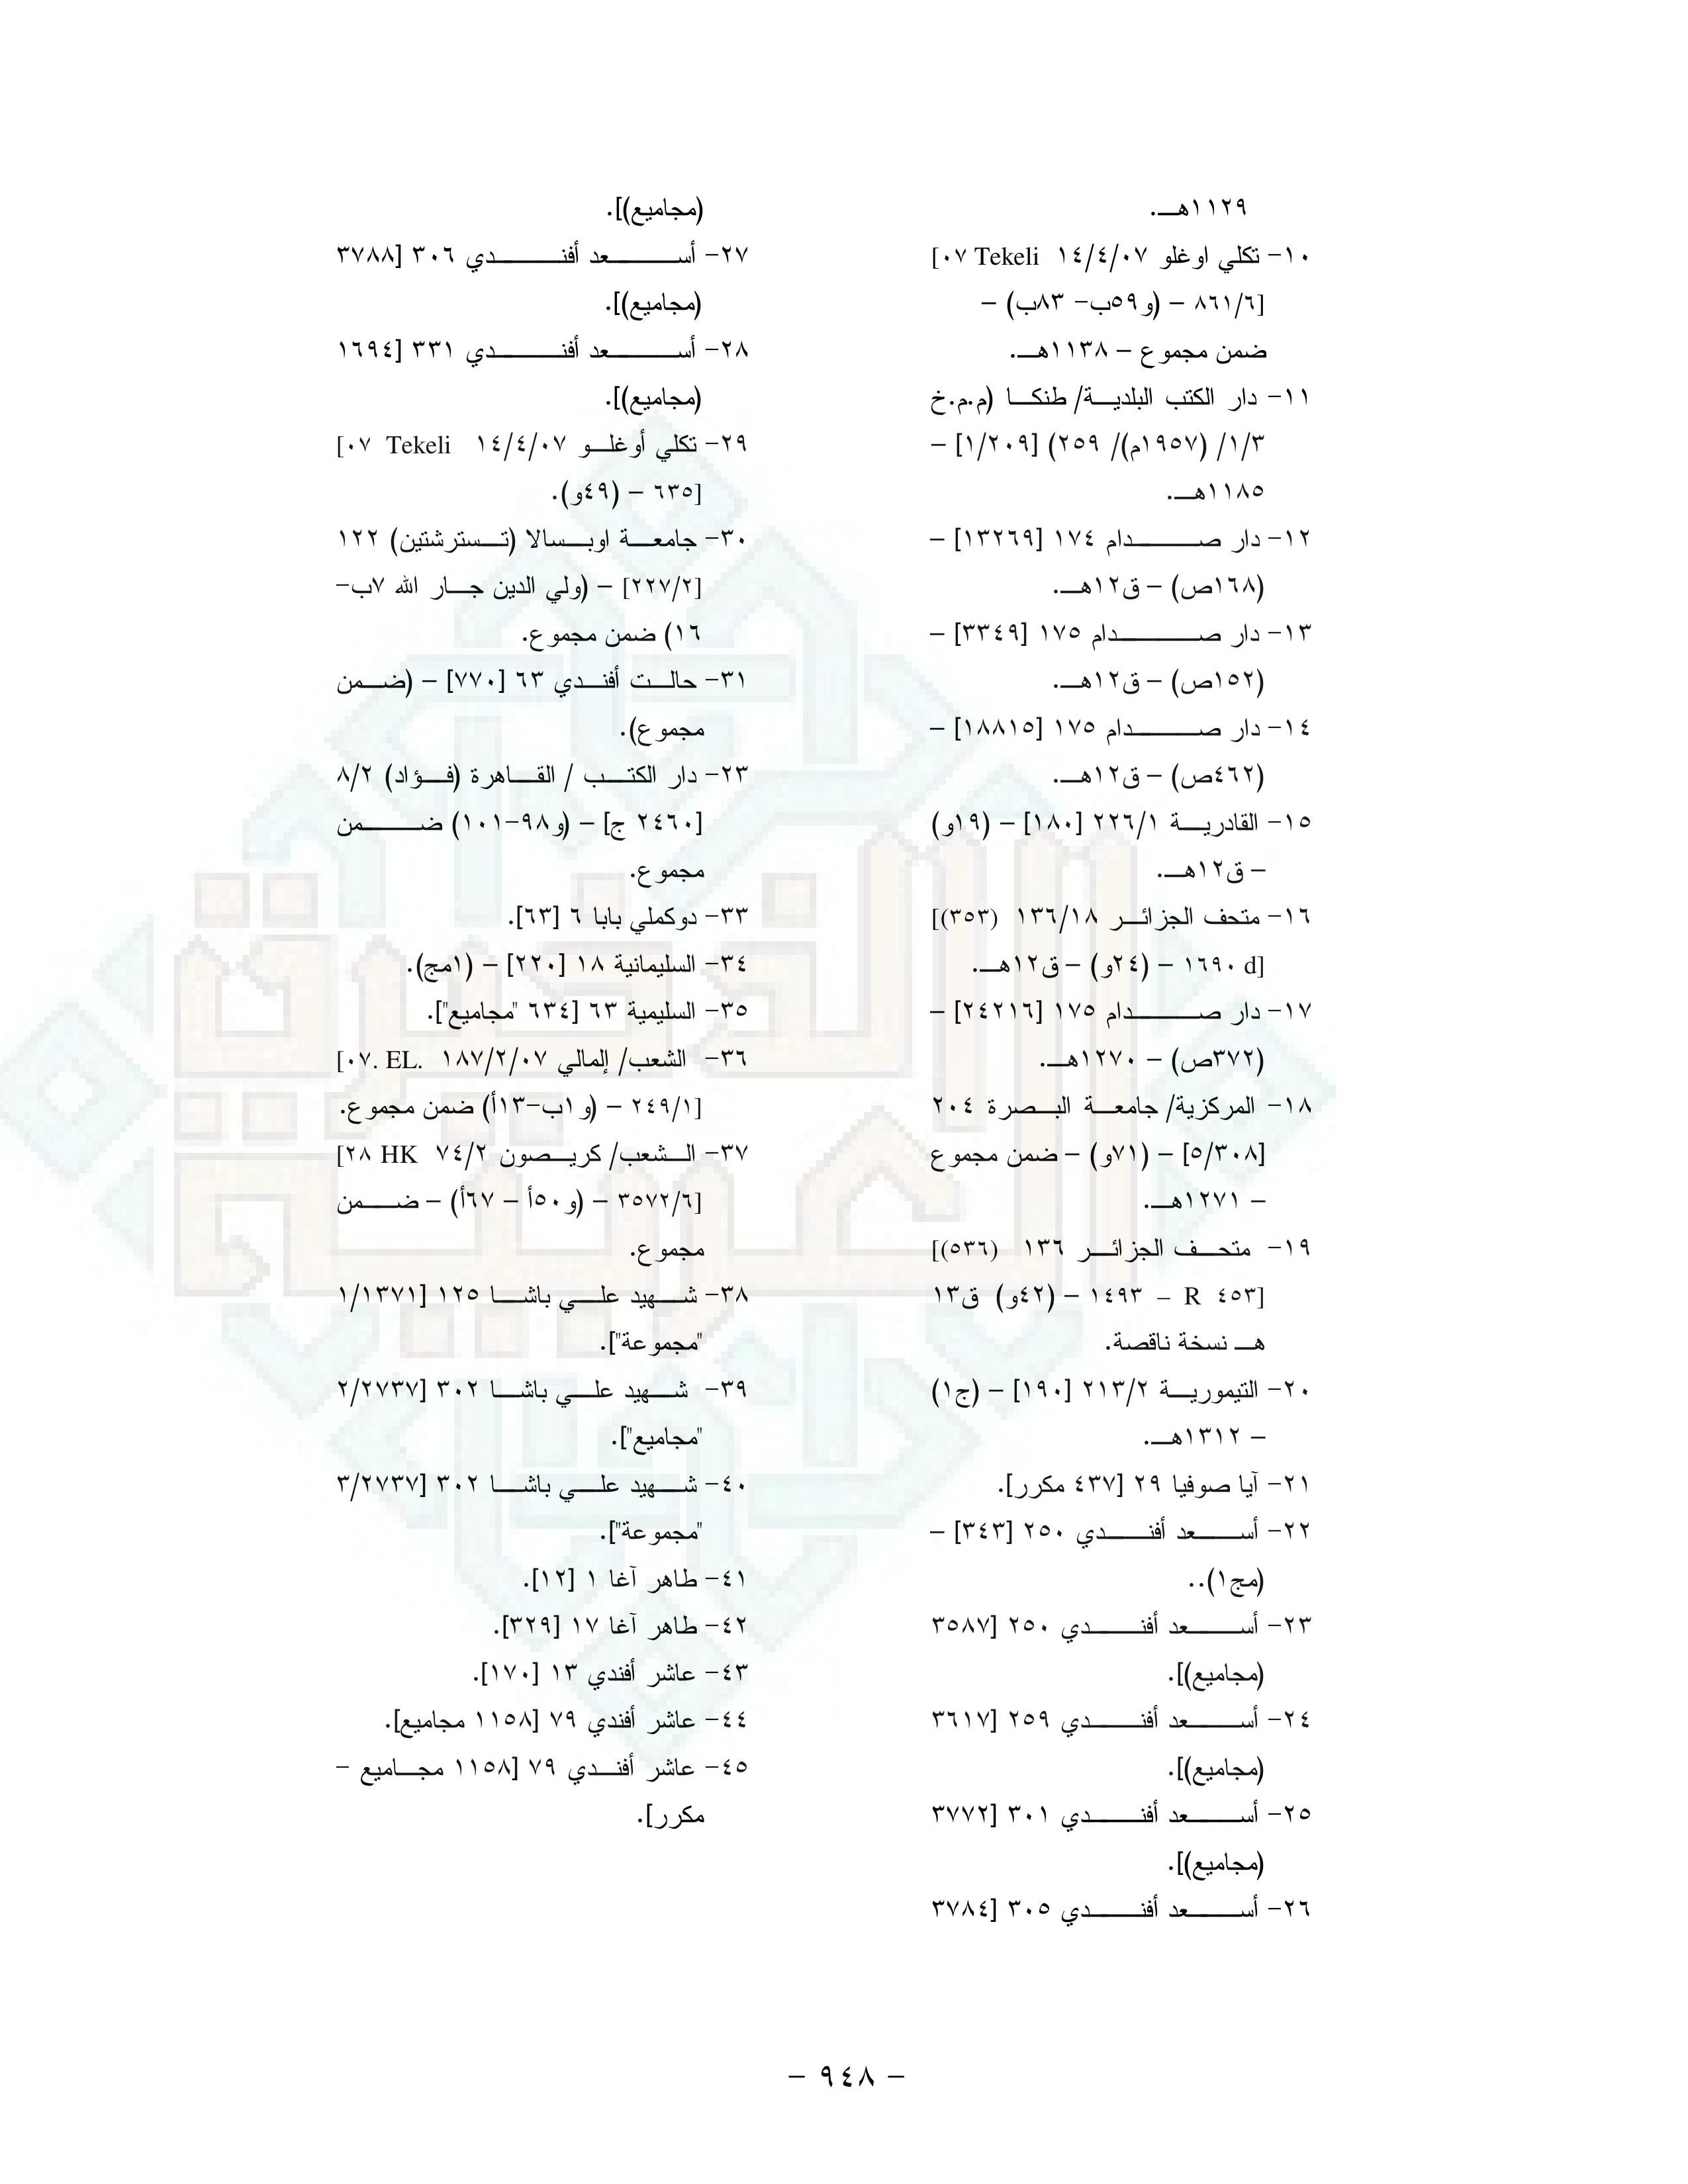 ١١٢٩هـ.
١٠- تكلي اوغلو ١٤/٤/٠٧ [٠٧ Tekeli
٨٦١/٦] – (و٥٩ب- ٨٣ب) –
ضمن مجموع – ١١٣٨هـ.
١١- دار الكتب البلدية/ طنكا (م.م.خ
١/٣/ (١٩٥٧م)/ ٢٥٩) [١/٢٠٩] –
١١٨٥هـ.
١٢- دار صدام ١٧٤ [١٣٢٦٩] –
(١٦٨ص) – ق١٢هـ.
١٣- دار صدام ١٧٥ [٣٣٤٩] –
(١٥٢ص) – ق١٢هـ.
١٤- دار صدام ١٧٥ [١٨٨١٥] –
(٤٦٢ص) – ق١٢هـ.
١٥- القادرية ٢٢٦/١ [١٨٠] – (١٩و)
– ق١٢هـ.
١٦- متحف الجزائر ١٣٦/١٨ [(٣٥٣)
١٦٩٠ d] – (٢٤و) – ق١٢هـ.
١٧- دار صدام ١٧٥ [٢٤٢١٦] –
(٣٧٢ص) – ١٢٧٠هـ.
١٨- المركزية/ جامعة البصرة ٢٠٤
[٥/٣٠٨] – (٧١و) – ضمن مجموع
– ١٢٧١هـ.
١٩- متحف الجزائر ١٣٦ [(٥٣٦)
١٤٩٣ – R ٤٥٣] – (٤٢و) ق١٣
هـ نسخة ناقصة.
٢٠- التيمورية ٢١٣/٢ [١٩٠] – (ج١)
– ١٣١٢هـ.
٢١- آيا صوفيا ٢٩ [٤٣٧ مكرر].
٢٢- أسعد أفندي ٢٥٠ [٣٤٣] –
(مج١)..
٢٣- أسعد أفندي ٢٥٠ [٣٥٨٧
(مجاميع)].
٢٤- أسعد أفندي ٢٥٩ [٣٦١٧
(مجاميع)].
٢٥- أسعد أفندي ٣٠١ [٣٧٧٢
(مجاميع)].
٢٦- أسعد أفندي ٣٠٥ [٣٧٨٤
(مجاميع)].
٢٧- أسعد أفندي ٣٠٦ [٣٧٨٨
(مجاميع)].
٢٨- أسعد أفندي ٣٣١ [١٦٩٤
(مجاميع)].
٢٩- تكلي أوغلو ١٤/٤/٠٧ [٠٧ Tekeli
٦٣٥] – (٤٩و).
٣٠- جامعة اوبسالا (تسترشتين) ١٢٢
[٢٢٧/٢] – (ولي الدين جار الله ٧ب-
١٦) ضمن مجموع.
٣١- حالت أفندي ٦٣ [٧٧٠] – (ضمن
مجموع).
٢٣- دار الكتب / القاهرة (فؤاد) ٨/٢
[٢٤٦٠ ج] – (و٩٨-١٠١) ضمن
مجموع.
٣٣- دوكملي بابا ٦ [٦٣].
٣٤- السليمانية ١٨ [٢٢٠] – (١مج).
٣٥- السليمية ٦٣ [٦٣٤ "مجاميع"].
٣٦- الشعب/ إلمالي ١٨٧/٢/٠٧ [٠٧. EL.
٢٤٩/١] – (و١ب-١٣أ) ضمن مجموع.
٣٧- الشعب/ كريصون ٧٤/٢ [٢٨ HK
٣٥٧٢/٦] – (و٥٠أ – ٦٧أ) – ضمن
مجموع.
٣٨- شهيد علي باشا ١٢٥ [١/١٣٧١
"مجموعة"].
٣٩- شهيد علي باشا ٣٠٢ [٢/٢٧٣٧
"مجاميع"].
٤٠- شهيد علي باشا ٣٠٢ [٣/٢٧٣٧
"مجموعة"].
٤١- طاهر آغا ١ [١٢].
٤٢- طاهر آغا ١٧ [٣٢٩].
٤٣- عاشر أفندي ١٣ [١٧٠].
٤٤- عاشر أفندي ٧٩ [١١٥٨ مجاميع].
٤٥- عاشر أفندي ٧٩ [١١٥٨ مجاميع –
مكرر].
– ٩٤٨ –
الذخيرة
العربية